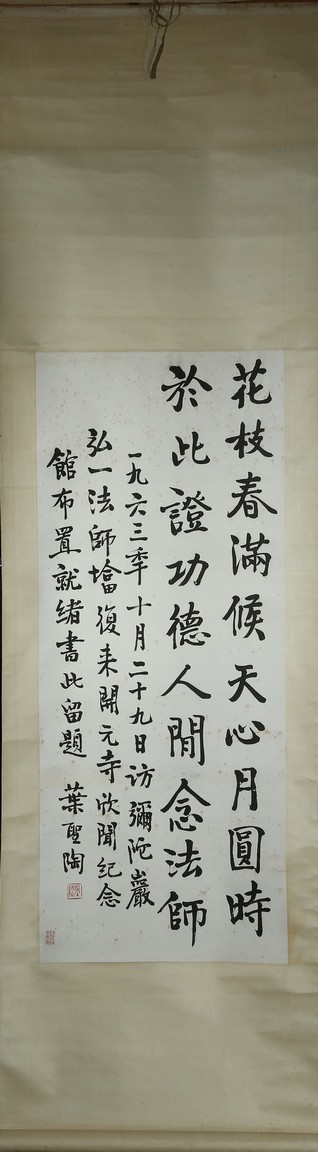 花枝春滿候天心月圓時
於此證功德人間念法師
一九六三年十月二十九日訪彌陀巖
弘一法師墖復来開元寺欣聞紀念
館布置就緒書此留題　葉聖陶